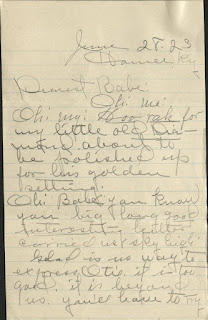 June 28. 23
Hamer Ky
Dearest Babe:
Oh: me:
Oh: my: Hoo rah for
my little old Dia-
mond about to
be polished up
for his golden
setting.
Oh: Babe you know
your big long good
interesting letter
carried us sky high
Glad is no way to
express Otis it is too
good. it is beyond
us. you'll have to try